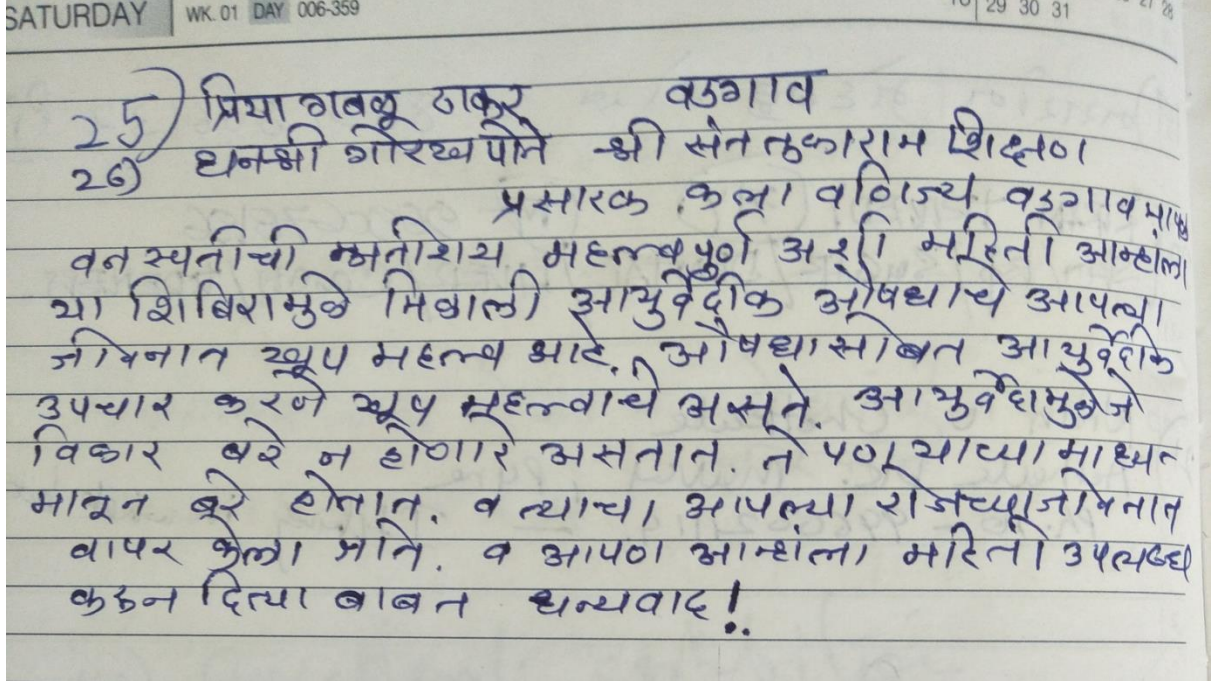 SATURDAY WK. 01 DAY 006-359 29 30 31 27 28
25) प्रिया गबळू ठाकूर वडगाव
26) धनश्री गोरख पोते श्री संत तुकाराम शिक्षण
प्रसारक कला वणिज्य वडगाव
वनस्पतीची अतीशय महत्वपुर्ण अशी महिती आम्हाला
या शिबिरामुळे मिळाली आयुर्वेदीक औषधाचे आपल्या
जीवनात खूप महत्व आहे. औषधासोबत आयुर्वेदीक
उपचार करणे खूप महत्वाचे असते. आयुर्वेदामुळे जे
विकार बरे न होणारे असतात. ते पण याच्या माध्य
मातून बरे होतात. व त्याचा आपल्या रोजच्या जीवनात
वापर केला जातो. व आपण आम्हाला महिती उपलब्ध
करून दिल्या बाबत धन्यवाद!